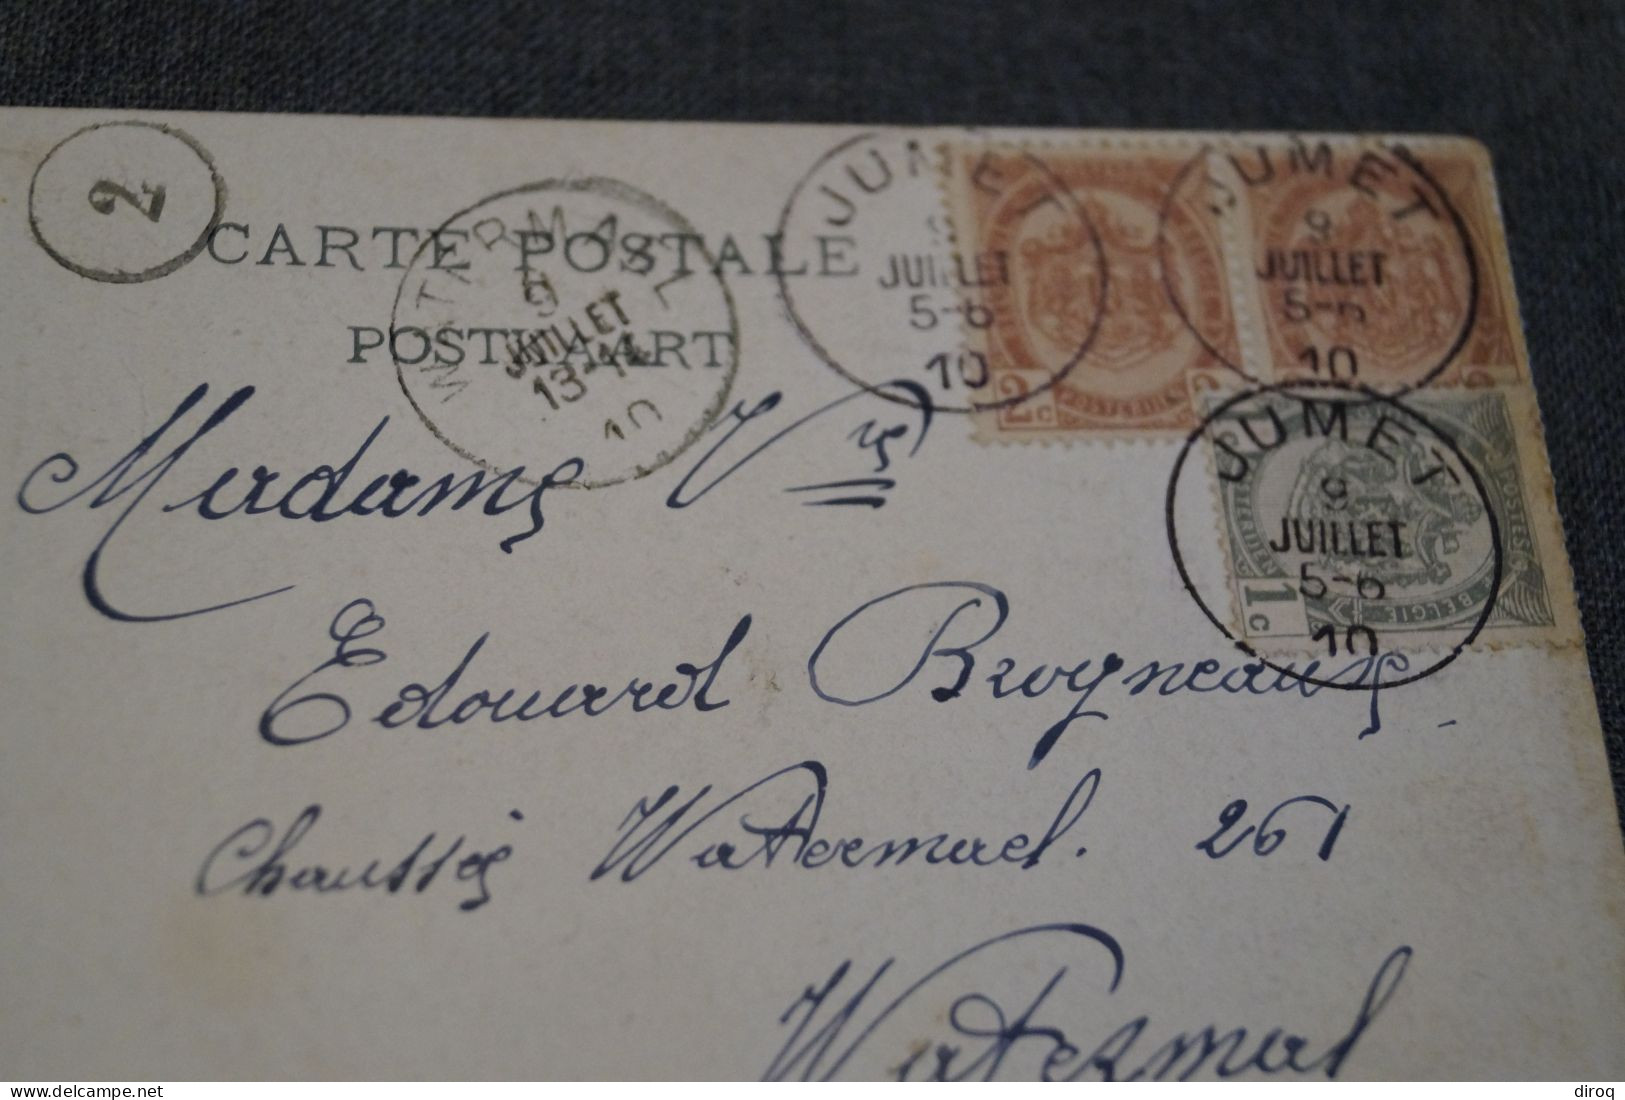 2
CARTE POSTALE
POSTKAART
WATERMAEL
9
JUILLET
13-14
10
JUMET
9
JUILLET
5-6
10
JUMET
9
JUILLET
5-6
10
2c
2
JUMET
9
JUILLET
5-6
10
1c
BELGIE
POSTES
Madame Vve
Edouard Brogneaux
Chaussée Watermael. 261
Watermal
diroq